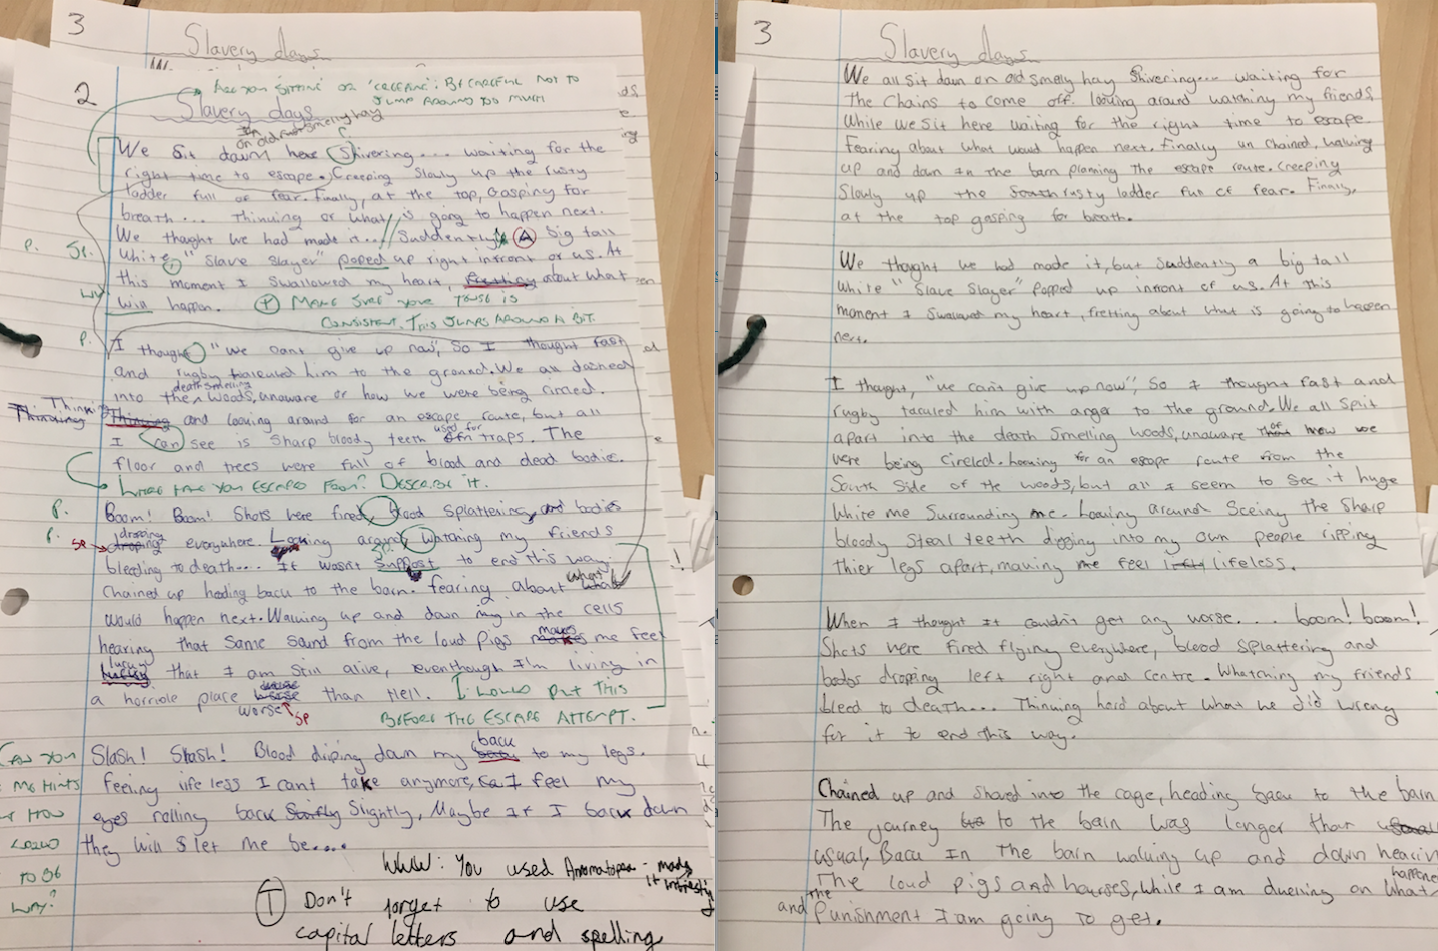 3
Slavery days
2
Are you sitting or 'creeping'? Be careful not to
jump around too much
Slavery days
on old smelly hay
We sit down here Shivering.... waiting for the
right time to escape. Creeping slowly up the rusty
ladder full of fear. Finally, at the top, gasping for
breath... Thinking of what is going to happen next.
We thought we had made it...// Suddenly A big tall
P. Sp.
white, "slave slayer" poped up right infront of us. At
this moment I swallowed my heart, about what
will happen. T Make sure your tense is
consistent. This jumps around a bit.
P.
I thought "we cant give up now", So I thought fast
and rugby him to the ground. We all dashed
death smelling
into the woods, unaware of how we were being circled.
Thinking
Thinking Thinking and looking around for an escape route, but all
used for
I can see is sharp bloody teeth traps. The
floor and trees were full of blood and dead bodie.
Where have you escaped from? Describe it.
P.
Boom! Boom! Shots here fired, blood splattering and bodies
P.
droping
sp droping everywhere. Looking around Watching my friends
sp
bleeding to death... It wasnt suppost to end this way.
Chained up heding back to the barn. fearing about what
would happen next. Walking up and down in the cells
hearing that same sound from the loud pigs makes me feel
lucky
that I am still alive, eventhough I'm living in
a horrible place than Hell. I would put this
worse sp
before the escape attempt.
back
Slash! Slash! Blood diping down my to my legs.
Can you
feeling life less I cant take anymore, I feel my
me hints
eyes rolling back Slightly, Maybe if I back down
how
they will let me be....
could
to go
way?
WWW: You used Anomatopea - made
it intresting
T Don't forget to use
capital letters and spelling
3
Slavery days
We all sit down on old smely hay Shivering... waiting for
the chains to come off. looking around watching my friends
While we sit here waiting for the right time to escape
Fearing about what woud happen next. Finally un chained, walking
up and down in the barn planning the escape route. Creeping
Slowly up the rusty ladder full of fear. Finaly,
at the top gasping for breath.
We thought we had made it, but suddently a big tall
white "Slave Slayer" Popped up infront of us. At this
moment I swallowed my heart, fretting about what is going to happen
next.
I thought, "we can't give up now", So I thought fast and
rugby tackled him with anger to the ground. We all split
apart into the death smelling woods, unaware of how we
were being circled. Looking for an escape route from the
South side of the woods, but all I seem to see it huge
white me surrounding me. Looking around Sceing the Sharp
bloody steal teeth digging into my own people ripping
thier legs apart, making me feel lifeless.
When I thought It couldn't get any worse.... boom! boom!
Shots were fired flying everywhere, blood splattering and
bodys droping left right and centre. Whatching my friends
bleed to death... Thinking hard about what we did wrong
for it to end this way.
Chained up and shoved into the cage, heading back to the barn
The journey to the barn was longer than
usual, Back In the barn walking up and down hearin
happene
The loud pigs and hourses, while I am dwelling on what
and the Punishment I am going to get.